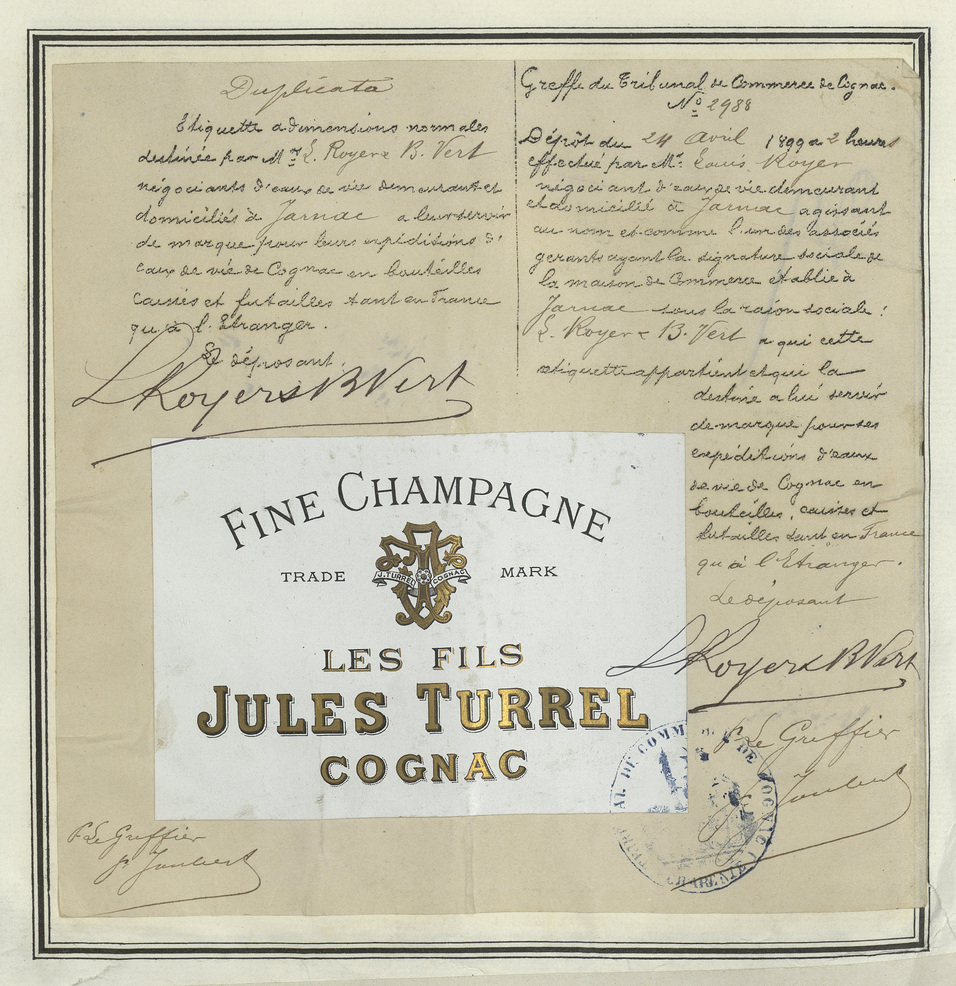 Duplicata
Etiquette a dimensions normales
destinée par Mrs L. Royer & B. Vert
négociants d'eaux de vie demeurant et
domiciliés à Jarnac a leur servir
de marque pour leurs expéditions d'
eaux de vie de Cognac en bouteilles
caisses et futailles tant en France
qu'à l'Etranger.
Le déposant
L Royer & B Vert
Greffe du Tribunal de Commerce de Cognac.
No 2988
Dépôt du 24 Avril 1899 a 2 heures
effectué par Mr. Louis Royer
négociant d'eaux de vie demeurant
et domicilié à Jarnac agissant
au nom et comme l'un des associés
gerants ayant la signature sociale de
la maison de Commerce etablie à
Jarnac sous la raison sociale :
L. Royer & B. Vert a qui cette
etiquette appartient et qui la
destine a lui servir
de marque pour ses
expéditions d'eaux
de vie de Cognac en
bouteilles, caisses et
futailles tant en France
qu'à l'Etranger.
Le déposant
L Royer & B Vert
P. Le Greffier
Joubert
FINE CHAMPAGNE
TRADE MARK
J. TURREL COGNAC
LES FILS
JULES TURREL
COGNAC
DE COMM DE COGNAC
CHARENTE
P. Le Greffier
Joubert